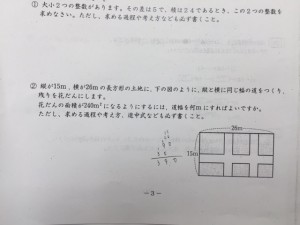 ① 大小2つの整数があります。その差は5で、積は24であるとき、この2つの整数を
求めなさい。ただし、求める過程や考え方なども必ず書くこと。
② 縦が15m、横が26mの長方形の土地に、下の図のように、縦と横に同じ幅の道をつくり、
残りを花だんにします。
花だんの面積が240m²になるようにするには、道幅を何mにすればよいですか。
ただし、求める過程や考え方、途中式なども必ず書くこと。
26m
15m
－3－